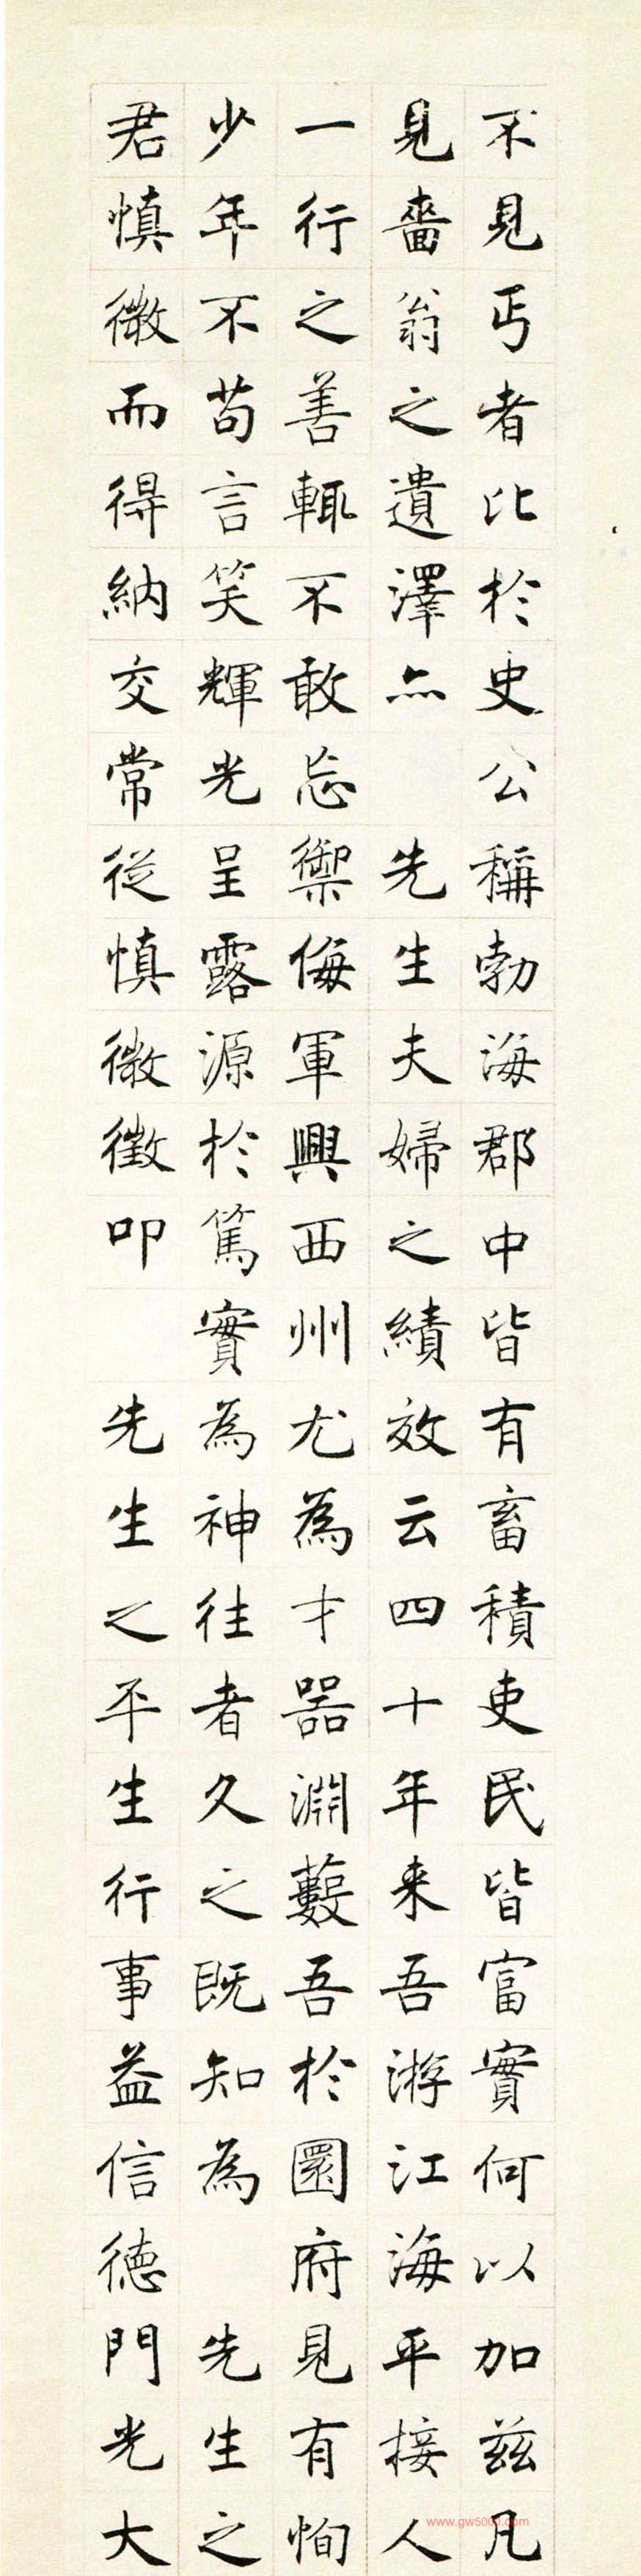 不見丐者比於史公稱勃海郡中皆有畜積吏民皆富實何以加兹凡
見嗇翁之遺澤亦先生夫婦之績效云四十年来吾游江海平接人
一行之善輒不敢忘禦侮軍興西州尤為才器淵藪吾於圜府見有恂
少年不苟言笑輝光呈露源於篤實為神往者久之既知為先生之
君慎微而得納交常從慎微徵叩先生之平生行事益信德門光大
www.gw5000.com